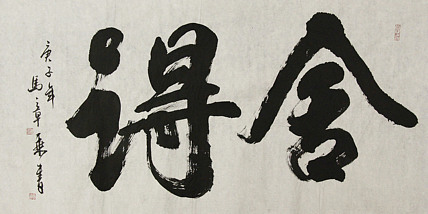 舍得
庚子年
馬章乘書